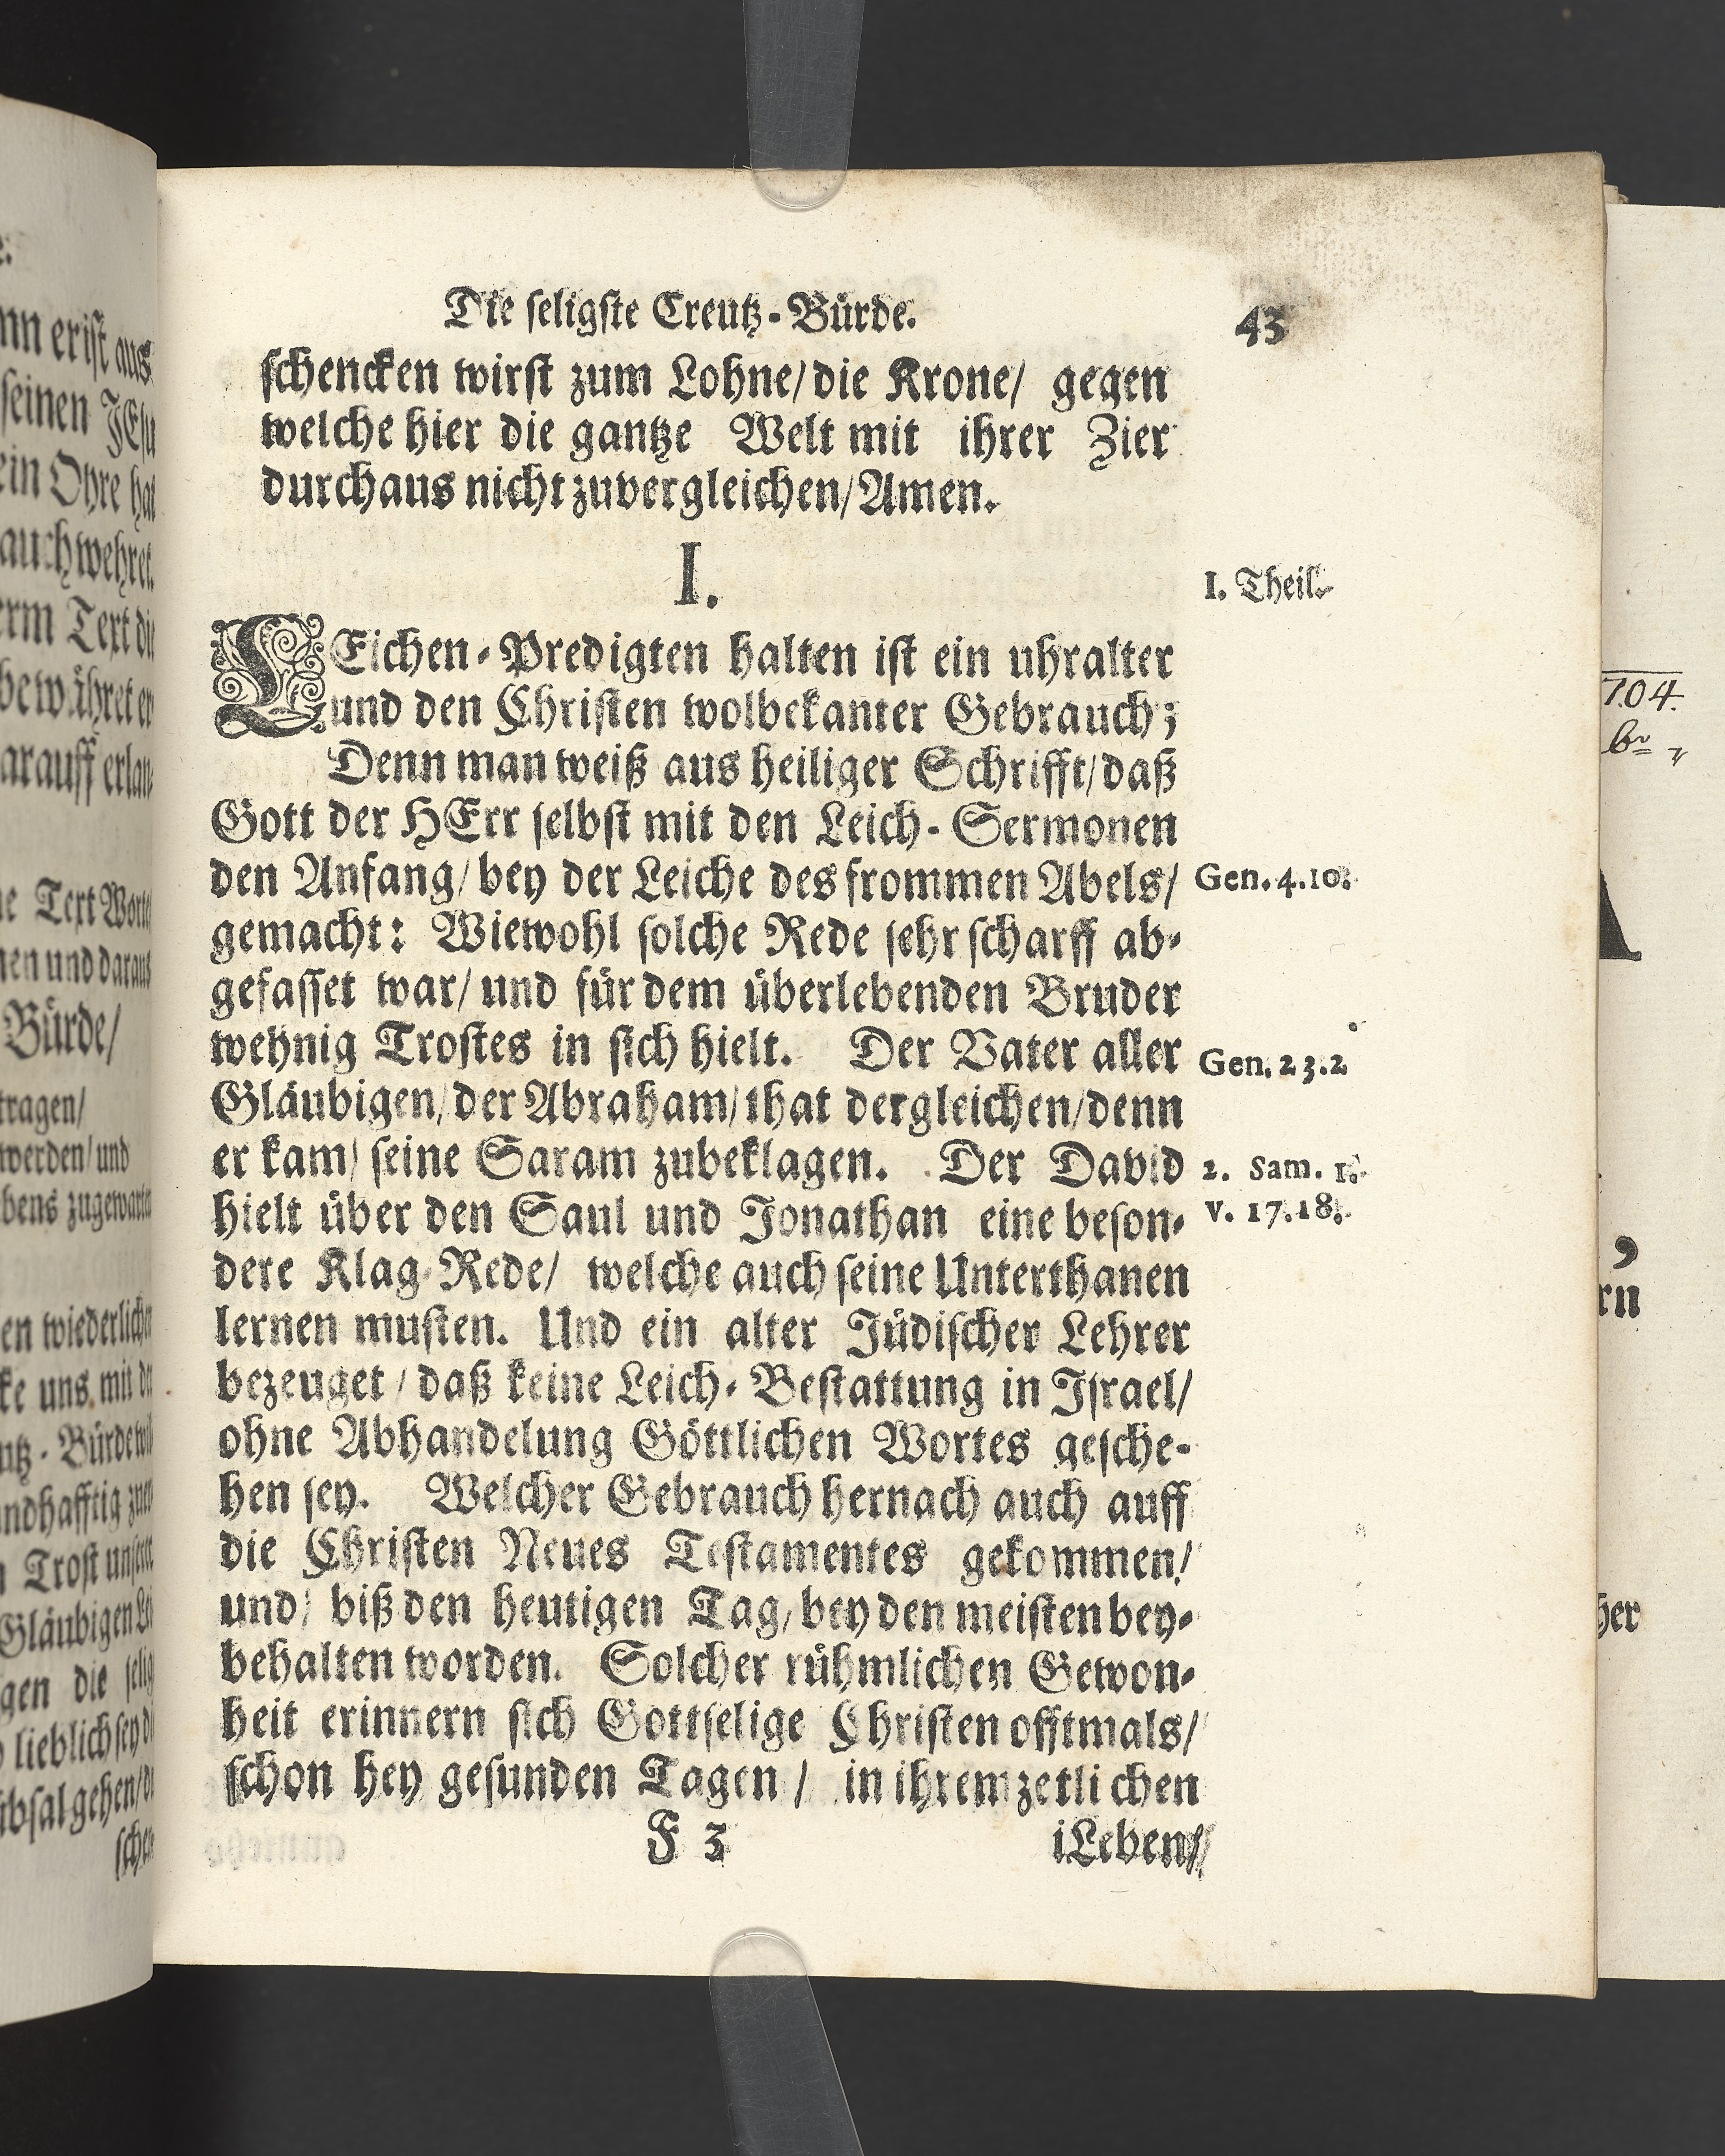 Die seligste Creutz-Bürde.
43
schencken wirst zum Lohne/die Krone/ gegen
welche hier die gantze Welt mit ihrer Zier
durchaus nicht zuvergleichen/Amen.
I.
I. Theil.
LEichen-Predigten halten ist ein uhralter
und den Christen wolbekanter Gebrauch;
Denn man weiß aus heiliger Schrifft/daß
Gott der HErr selbst mit den Leich-Sermonen
den Anfang/bey der Leiche des frommen Abels/
Gen. 4.10.
gemacht: Wiewohl solche Rede sehr scharff ab-
gefasset war/und für dem überlebenden Bruder
wehnig Trostes in sich hielt. Der Vater aller
Gen. 23.2
Gläubigen/der Abraham/that dergleichen/denn
er kam/ seine Saram zubeklagen. Der David
2. Sam. 1.
hielt über den Saul und Jonathan eine beson-
v. 17.18.
dere Klag-Rede/ welche auch seine Unterthanen
lernen musten. Und ein alter Jüdischer Lehrer
bezeuget/daß keine Leich-Bestattung in Israel/
ohne Abhandelung Göttlichen Wortes gesche-
hen sey. Welcher Gebrauch hernach auch auff
die Christen Neues Testamentes gekommen/
und/ biß den heutigen Tag/bey den meisten bey-
behalten worden. Solcher rühmlichen Gewon-
heit erinnern sich Gottselige Christen offtmals/
schon hey gesunden Tagen/ in ihrem zetlichen
F 3
iLeben/
nn er ist aus
seinen JEsu
auch wehret.
erm Text die
bewähret er
arauff erlan-
Text Worte
nen und daraus
Bürde/
tragen/
werden/und
bens zugewarten
en wiederlichen
ke uns mit de
Bürde
Trost unserer
Gläubigen
gen die selig
lieblich sey
704.
her